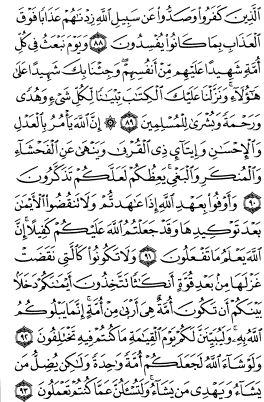 ٱلَّذِينَ كَفَرُوا۟ وَصَدُّوا۟ عَن سَبِيلِ ٱللَّهِ زِدْنَٰهُمْ عَذَابًا فَوْقَ
ٱلْعَذَابِ بِمَا كَانُوا۟ يُفْسِدُونَ ٨٨ وَيَوْمَ نَبْعَثُ فِى كُلِّ
أُمَّةٍ شَهِيدًا عَلَيْهِم مِّنْ أَنفُسِهِمْ وَجِئْنَا بِكَ شَهِيدًا عَلَىٰ
هَٰٓؤُلَآءِ وَنَزَّلْنَا عَلَيْكَ ٱلْكِتَٰبَ تِبْيَٰنًا لِّكُلِّ شَىْءٍ وَهُدًى
وَرَحْمَةً وَبُشْرَىٰ لِلْمُسْلِمِينَ ٨٩ ۞ إِنَّ ٱللَّهَ يَأْمُرُ بِٱلْعَدْلِ
وَٱلْإِحْسَٰنِ وَإِيتَآئِ ذِى ٱلْقُرْبَىٰ وَيَنْهَىٰ عَنِ ٱلْفَحْشَآءِ
وَٱلْمُنكَرِ وَٱلْبَغْىِ يَعِظُكُمْ لَعَلَّكُمْ تَذَكَّرُونَ
٩٠ وَأَوْفُوا۟ بِعَهْدِ ٱللَّهِ إِذَا عَٰهَدتُّمْ وَلَا تَنقُضُوا۟ ٱلْأَيْمَٰنَ
بَعْدَ تَوْكِيدِهَا وَقَدْ جَعَلْتُمُ ٱللَّهَ عَلَيْكُمْ كَفِيلًا إِنَّ
ٱللَّهَ يَعْلَمُ مَا تَفْعَلُونَ ٩١ وَلَا تَكُونُوا۟ كَٱلَّتِى نَقَضَتْ
غَزْلَهَا مِنۢ بَعْدِ قُوَّةٍ أَنكَٰثًا تَتَّخِذُونَ أَيْمَٰنَكُمْ دَخَلًۢا
بَيْنَكُمْ أَن تَكُونَ أُمَّةٌ هِىَ أَرْبَىٰ مِنْ أُمَّةٍ إِنَّمَا يَبْلُوكُمُ
ٱللَّهُ بِهِۦ وَلَيُبَيِّنَنَّ لَكُمْ يَوْمَ ٱلْقِيَٰمَةِ مَا كُنتُمْ فِيهِ تَخْتَلِفُونَ ٩٢
وَلَوْ شَآءَ ٱللَّهُ لَجَعَلَكُمْ أُمَّةً وَٰحِدَةً وَلَٰكِن يُضِلُّ مَن
يَشَآءُ وَيَهْدِى مَن يَشَآءُ وَلَتُسْـَٔلُنَّ عَمَّا كُنتُمْ تَعْمَلُونَ ٩٣